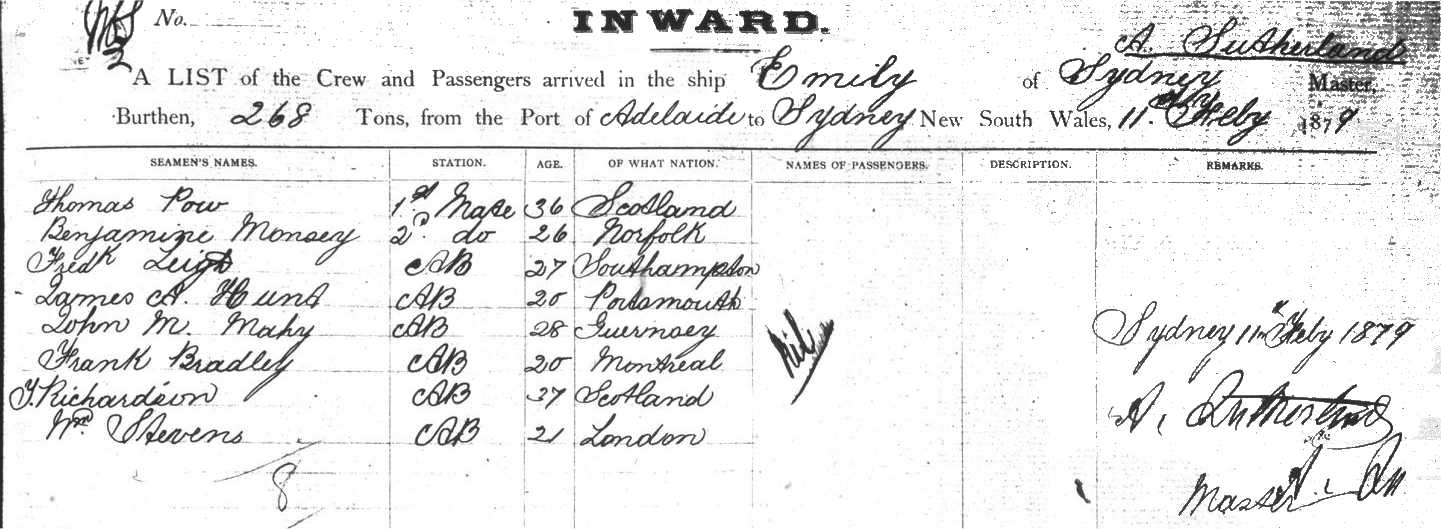 No.
INWARD.
A. Sutherland
A LIST of the Crew and Passengers arrived in the ship Emily of Sydney Master,
Burthen, 268 Tons, from the Port of Adelaide to Sydney New South Wales, 11th Feby 1879
SEAMEN'S NAMES. STATION. AGE. OF WHAT NATION. NAMES OF PASSENGERS. DESCRIPTION. REMARKS.
Thomas Pow 1st Mate 36 Scotland
Benjamine Monsey 2d. do 26 Norfolk
Fredk Leigh AB 27 Southampton
James A. Hunt AB 20 Portsmouth
John M. Mahy AB 28 Guernsey
Nil
Sydney 11th Feby 1879
Frank Bradley AB 20 Montreal
T. Richardson AB 37 Scotland
A. Sutherland
Wm. Stevens AB 21 London
8
Master